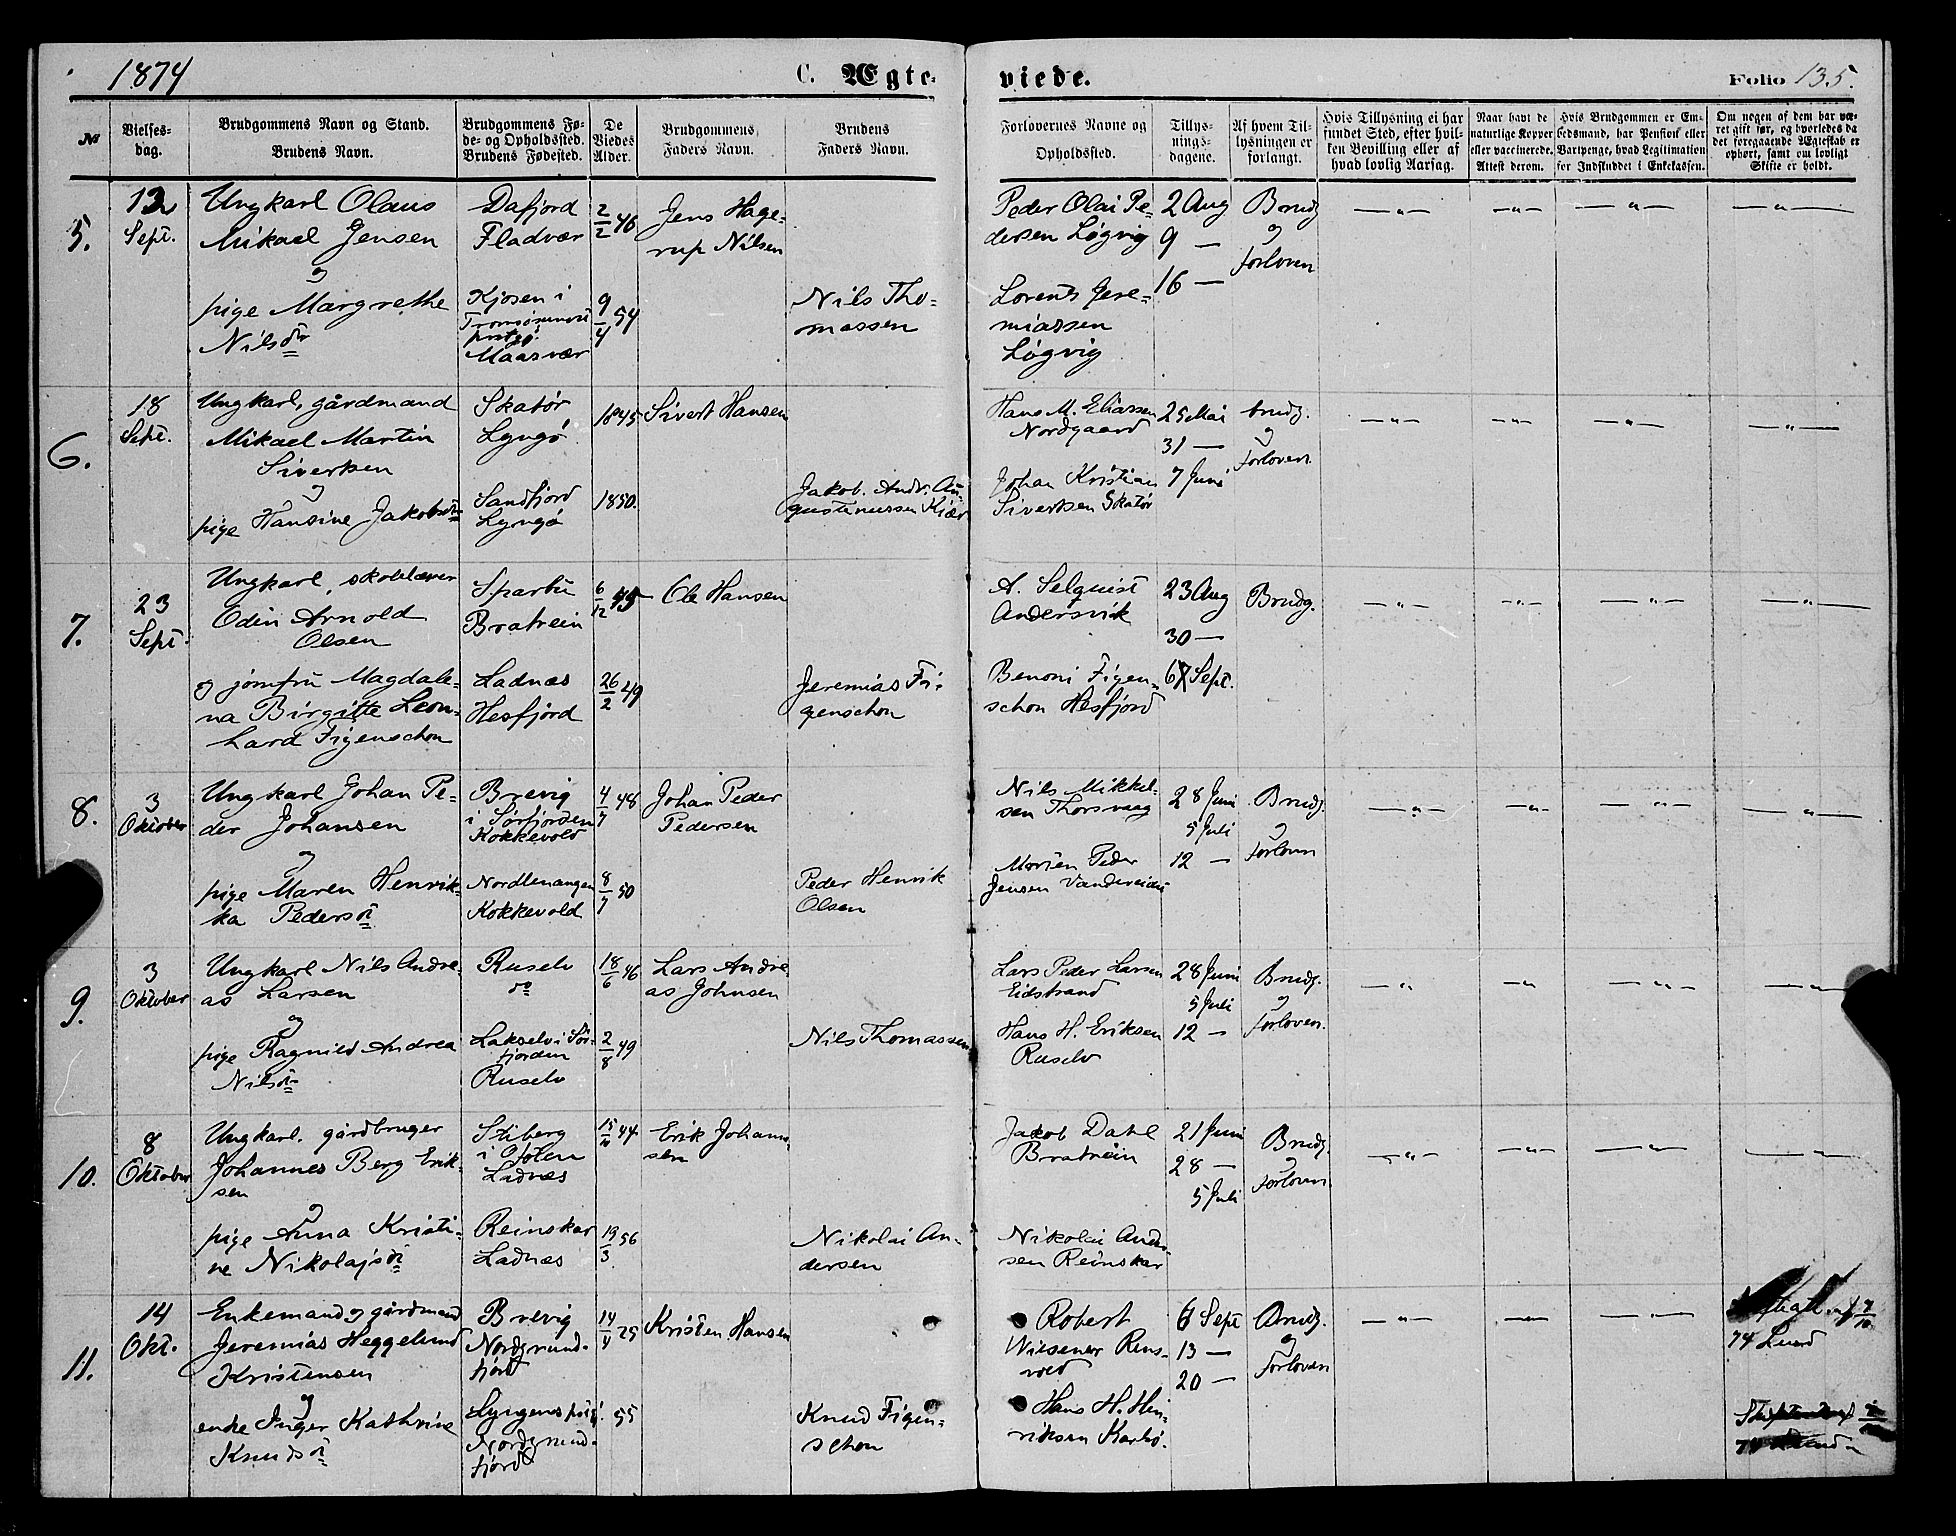 1874
C. Ægte-
viede.
Folio 135.
№
Vielses-
dag.
Brudgommens Navn og Stand.
Brudens Navn.
Brudgommens Fø-
de- og Opholdssted.
Brudens Fødested.
De
Viedes
Alder.
Brudgommens
Faders Navn.
Brudens
Faders Navn.
Forlovernes Navne og
Opholdssted.
Tillys-
nings-
dagene.
Af hvem Til-
lysningen er
forlangt.
Hvis Tillysning ei har
fundet Sted, efter hvil-
ken Bevilling eller af
hvad lovlig Aarsag.
Naar havt de
naturlige Kopper
eller vaccinerede.
Attest derom.
Hvis Brudgommen er Em-
bedsmand, har Pension eller
Vartpenge, hvad Legitimation
for Indskuddet i Enkekassen.
Om nogen af dem har væ-
ret gift før, og hvorledes da
det foregaaende Ægteskab er
ophørt, samt om lovligt
Skifte er holdt.
5.
12
Sept.
Ungkarl Olaus
Mikael Jensen
og
pige Margrethe
Nilsdr
Dafjord
Fladvær
Kjosen i
Maasvær
2/2 46
9/4 54
Jens Hage-
rup Nilsen
Nils Tho-
massen
Peder Olai Pe-
dersen Løgvig
Lorents Jere-
miassen
Løgvig
2 Aug
9 —
16 —
Brudg
og
Forloven
— " —
— " —
— " —
— " —
6.
18
Sept.
Ungkarl, gårdmand
Mikael Martin
Sivertsen
og
pige Hansine Jakobsdr
Skatør
Lyngø
Sandfjord
Lyngø
1845
1850.
Sivert Hansen
Jakob. Andr. Au-
gustinussen Kiær
Hans M. Eliassen
Nordgaard
Johan Kristian
Sivertsen Skatør
25 Mai
31 —
7 Juni
brudg.
og
Forloven.
— " —
— " —
— " —
— " —
7.
23
Sept.
Ungkarl, skolelærer
Odin Arnold
Olsen
og jomfru Magdale-
na Birgitte Leon-
hard Figenschou
Sparbu
Bratrein
Ladnæs
Hesfjord
6/12 45
26/2 49
Ole Hansen
Jeremias Fi-
genschou
A. Selquist
Andersvik
Benoni Figen-
schou Hesfjord
23 Aug
30 —
6 Sept.
Brudg.
— " —
— " —
— " —
— " —
8.
3
Oktober
Ungkarl Johan Pe-
der Johansen
og
pige Maren Henrik-
ka Pedersdr
Brevig
i Sørfjorden
Kokkevold
Nordlenangen
Kokkevold
4/7 48
8/7 50
Johan Peder
Pedersen
Peder Henrik
Olsen
Nils Mikkel-
sen Thorsvaag
Morten Peder
Jensen
28 Juni
5 Juli
12 —
Brudg.
og
Forloven
— " —
— " —
— " —
— " —
9.
3
Oktober
Ungkarl Nils Andre-
as Larsen
og
pige Ragnild Andrea
Nilsdr
Ruselv
do
Lakselv i Sør-
fjorden
Ruselv
18/6 46
2/8 49
Lars Andre-
as Johnsen
Nils Thomassen
Lars Peder Larsen
Eidstrand
Hans H. Eriksen
Ruselv
28 Juni
5 Juli
12 —
Brudg.
og
Forloven.
— " —
— " —
— " —
— " —
10.
8
Oktober
Ungkarl. gårdbruger
Johannes Berg Erik-
sen
og
pige Anna Kristi-
ne Nikolajsdr
Stiberg
i Ofoten
Ladnæs
Reinskar
Ladnæs
15/10 44
19/3 56
Erik Johann-
sen
Nikolai An-
dersen
Jakob Dahl
Bratrein
Nikolai Ander-
sen Reinskar
21 Juni
28 —
5 Juli
Brudg.
og
Forloven.
— " —
— " —
— " —
— " —
11.
14
Okt.
Enkemand og gårdmand
Jeremias Heggelund
Kristensen
og
enke Inger Kathrine
Knudsdr
Brevig
Nordgrund-
fjord
Nordgrund-
fjord
25
55
Kristen Hansen
Knud Figen-
schou
Robert
Wilsener Rens-
vold
Hans H. Hin-
riksen Karlsø.
6 Sept
13 —
20 —
Brudg.
og
Forloven
— " —
— " —
— " —
74 Lund